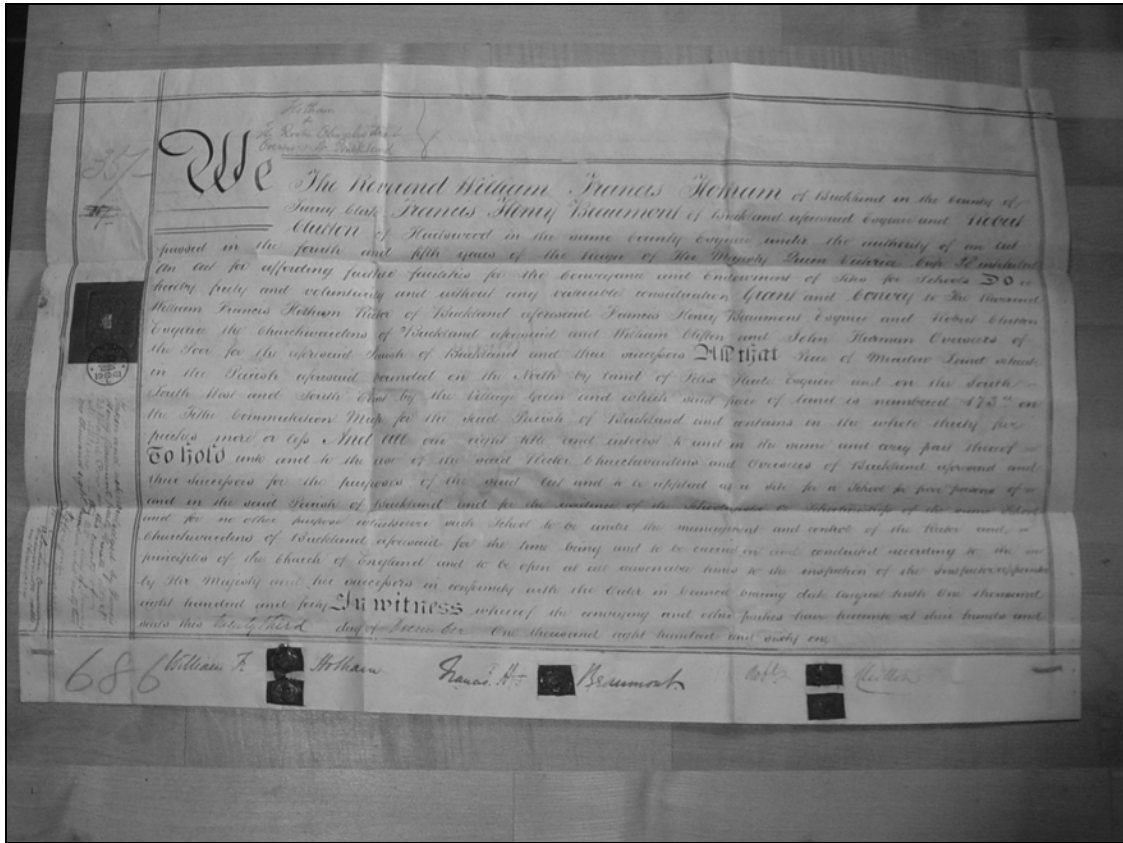 Hotham
&
The Rector Churchwardens &
Overseers of Buckland
35/-
We The Reverend William Francis Hotham of Buckland in the County of
Surrey Clerk Francis Henry Beaumont of Buckland aforesaid Esquire and Robert
Clutton of Hartswood in the same County Esquire under the authority of an Act
passed in the fourth and fifth years of the Reign of Her Majesty Queen Victoria Cap 38 intituled
An Act for affording further facilities for the Conveyance and Endowment of Sites for Schools Do
hereby freely and voluntarily and without any valuable consideration Grant and Convey to The Reverend
William Francis Hotham Rector of Buckland aforesaid Francis Henry Beaumont Esquire and Robert Clutton
Esquire the Churchwardens of Buckland aforesaid and William Clifton and John Overseers of
the Poor for the aforesaid Parish of Buckland and their successors All that Piece of Meadow Land situate
in the Parish aforesaid bounded on the North by land of Esquire and on the South
South West and South East by the Village Green and which said piece of land is numbered 173a on
the Tithe Commutation Map for the said Parish of Buckland and contains in the whole thirty five
perches more or less And all our right title and interest to and in the same and every part thereof
To hold unto and to the use of the said Rector Churchwardens and Overseers of Buckland aforesaid and
their successors for the purposes of the said Act and to be applied as a site for a School for poor persons of
and in the said Parish of Buckland and for the residence of the Schoolmaster or Schoolmistress of the same School
and for no other purpose whatsoever such School to be under the management and control of the Rector and
Churchwardens of Buckland aforesaid for the time being and to be carried on and conducted according to the
principles of the Church of England and to be open at all reasonable times to the inspection of the Inspector appointed
by Her Majesty and her successors in conformity with the Order in Council bearing date August tenth One thousand
eight hundred and forty In witness whereof the conveying and other parties have hereunto set their hands and
seals this twenty third day of December One thousand eight hundred and sixty one
686 William F. Hotham Francis Hy Beaumont Robt Clutton